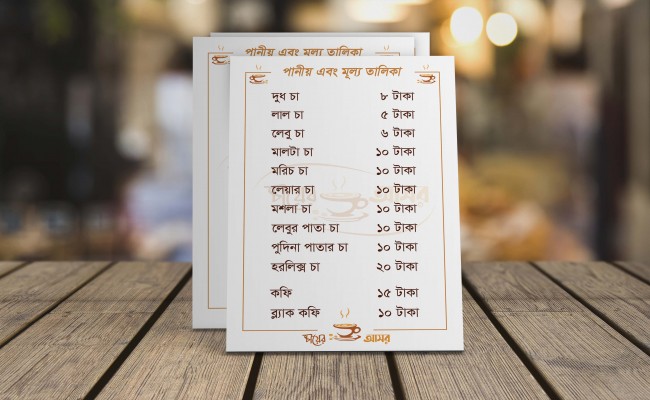 পানীয় এবং মূল্য তালিকা
পানীয় এবং মূল্য তালিকা
দুধ চা ৮ টাকা
লাল চা ৫ টাকা
লেবু চা ৬ টাকা
মালটা চা ১০ টাকা
মরিচ চা ১০ টাকা
লেয়ার চা ১০ টাকা
মশলা চা ১০ টাকা
লেবুর পাতা চা ১০ টাকা
পুদিনা পাতার চা ১০ টাকা
হরলিক্স চা ২০ টাকা
কফি ১৫ টাকা
ব্ল্যাক কফি ১০ টাকা
চায়ের আসর
চায়ের আসর